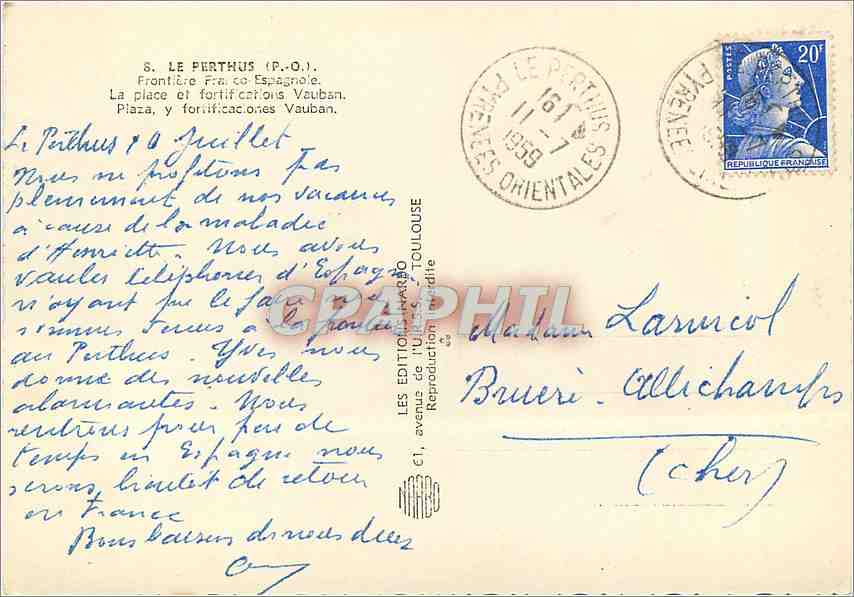 8. LE PERTHUS (P.-O.).
Frontière Franco-Espagnole.
La place et fortifications Vauban.
Plaza, y fortificaciones Vauban.
Le Perthus 10 Juillet
Nous ne profitons pas
pleinement de nos vacances
à cause de la maladie
d'Henriette. Nous avons
voulu téléphoner d'Espagne
n'ayant pu le faire nous
sommes venus à la frontière
au Perthus. Yves nous
donne des nouvelles
alarmantes. Nous
rentrons pour peu de
temps en Espagne nous
serons bientôt de retour
en France
Bons baisers de nous deux
LES EDITIONS NARBO
61, avenue de l'U.R.S.S. - TOULOUSE
Reproduction interdite
NARBO
LE PERTHUS
16H
11-7
1959
PYRENEES ORIENTALES
POSTES
20F
REPUBLIQUE FRANÇAISE
PYRENEE
CPARAMA
Madame
Bruère-Allichamps
(Cher)